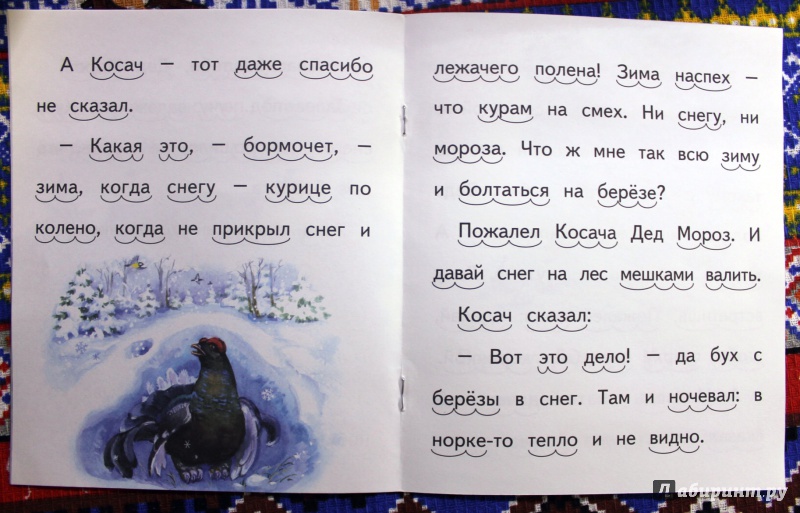 А Косач – тот даже спасибо
не сказал.
– Какая это, – бормочет, –
зима, когда снегу – курице по
колено, когда не прикрыл снег и
лежачего полена! Зима наспех –
что курам на смех. Ни снегу, ни
мороза. Что ж мне так всю зиму
и болтаться на берёзе?
Пожалел Косача Дед Мороз. И
давай снег на лес мешками валить.
Косач сказал:
– Вот это дело! – да бух с
берёзы в снег. Там и ночевал: в
норке-то тепло и не видно.
Лабиринт.ру